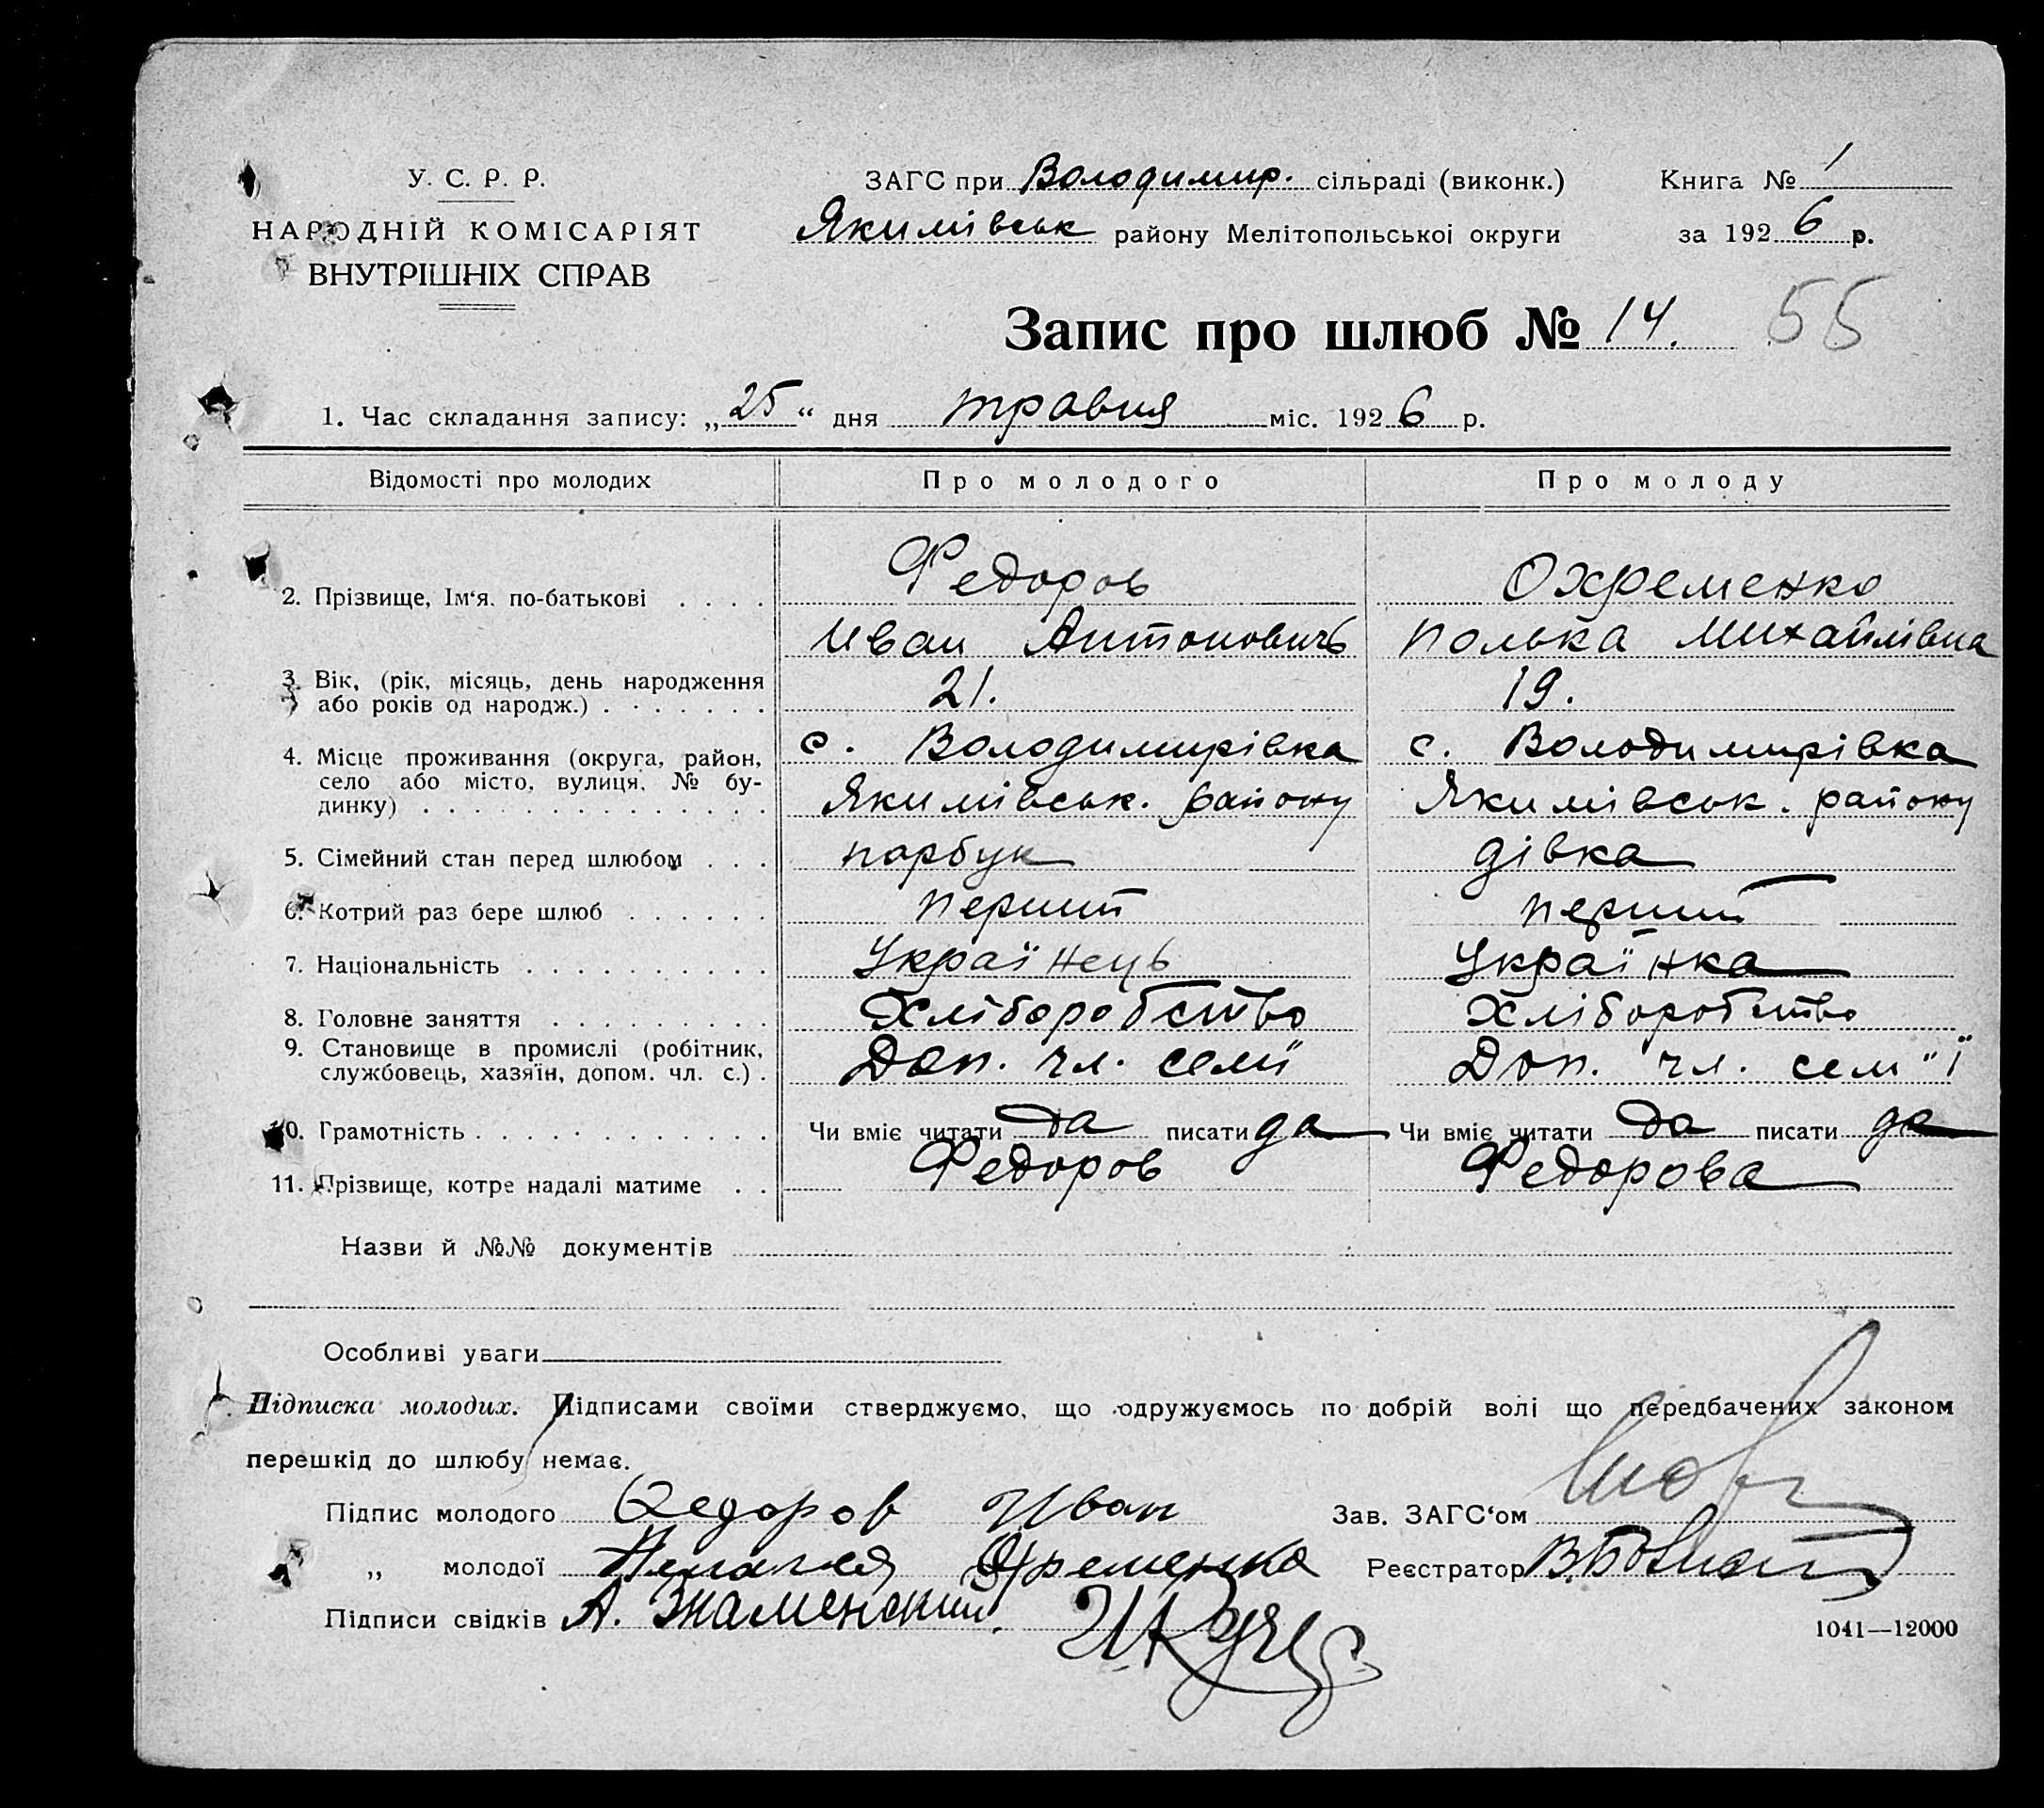 У. С. Р. Р.
НАРОДНІЙ КОМІСАРІЯТ
ВНУТРІШНІХ СПРАВ
ЗАГС при Володимир. сільраді (виконк.)
Якимівськ району Мелітопольської округи
Книга № 1
за 1926 р.
Запис про шлюб № 14. 55
1. Час складання запису: „25“ дня травня міс. 1926 р.
Відомості про молодих Про молодого Про молоду
2. Прізвище, Ім‘я. по-батькові . . . . Федоров Охременко
Иван Антоновичъ Полька Михайлівна
3. Вік, (рік, місяць, день народження або років од народж.) . . . . . . . 21. 19.
4. Місце проживання (округа, район, село або місто, вулиця, № будинку) с. Володимирівка с. Володимирівка
Якимівськ. району Якимівськ. району
5. Сімейний стан перед шлюбом . . . парбук дівка
6. Котрий раз бере шлюб . . . . . . перший перший
7. Національність . . . . . . . . . . Українець Українка
8. Головне заняття . . . . . . . . . Хліборобство Хліборобство
9. Становище в промислі (робітник, службовець, хазяїн, допом. чл. с.) . Доп. чл. семї Доп. чл. сем"ї
10. Грамотність . . . . . . . . . . . . Чи вміє читати да писати да Чи вміє читати да писати да
11. Прізвище, котре надалі матиме . . Федоров Федорова
Назви й №№ документів
Особливі уваги
Підписка молодих. Підписами своїми стверджуємо, що одружуємось по добрій волі що передбачених законом
перешкід до шлюбу немає.
Підпис молодого Федоров Иван Зав. ЗАГС‘ом
„ молодої Пелагея Охременко Реєстратор
Підписи свідків А. Знаменский.
1041—12000